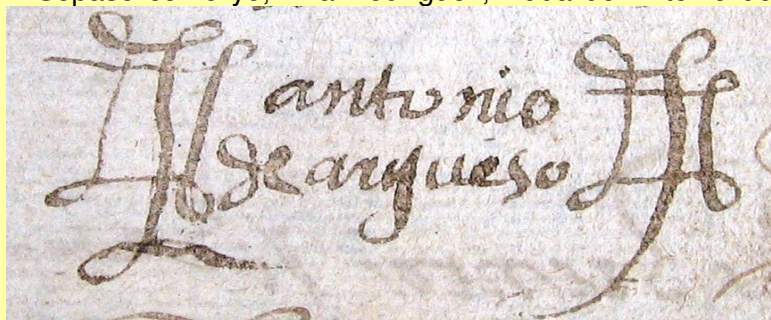 antonio
de argueso